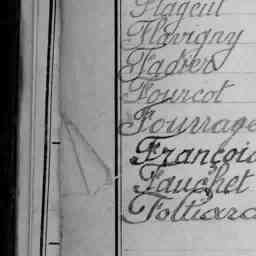 Flageul
Flavigny
Fadier
Fourcot
Fourrage
Françoi
Fauchet
Foltiard